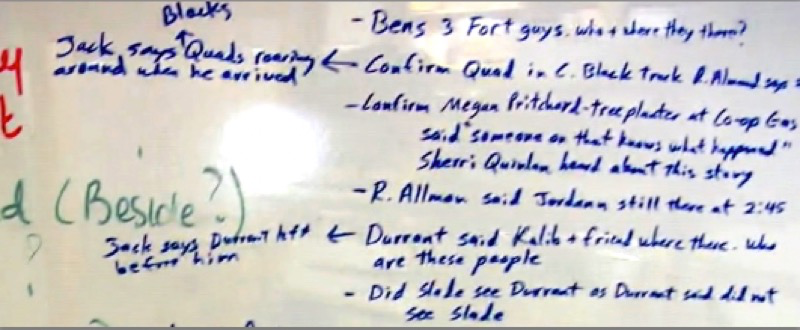 Blacks
Jack says Quads roaring
around when he arrived
- Bens 3 Fort guys. who + where they there?
← Confirm Quad in C. Black Truck R. Almond says
- Confirm Megan Pritchard - tree planter at Co-op Gas
said "someone on that knows what happened"
Sherri Quinlan heard about this story
- R. Allman said Jordann still there at 2:45
d (Beside?)
?
Jack says Durrant left
before him
← Durrant said Kalib + friend where there. who
are these people
- Did Slade see Durrant as Durrant said did not
see Slade